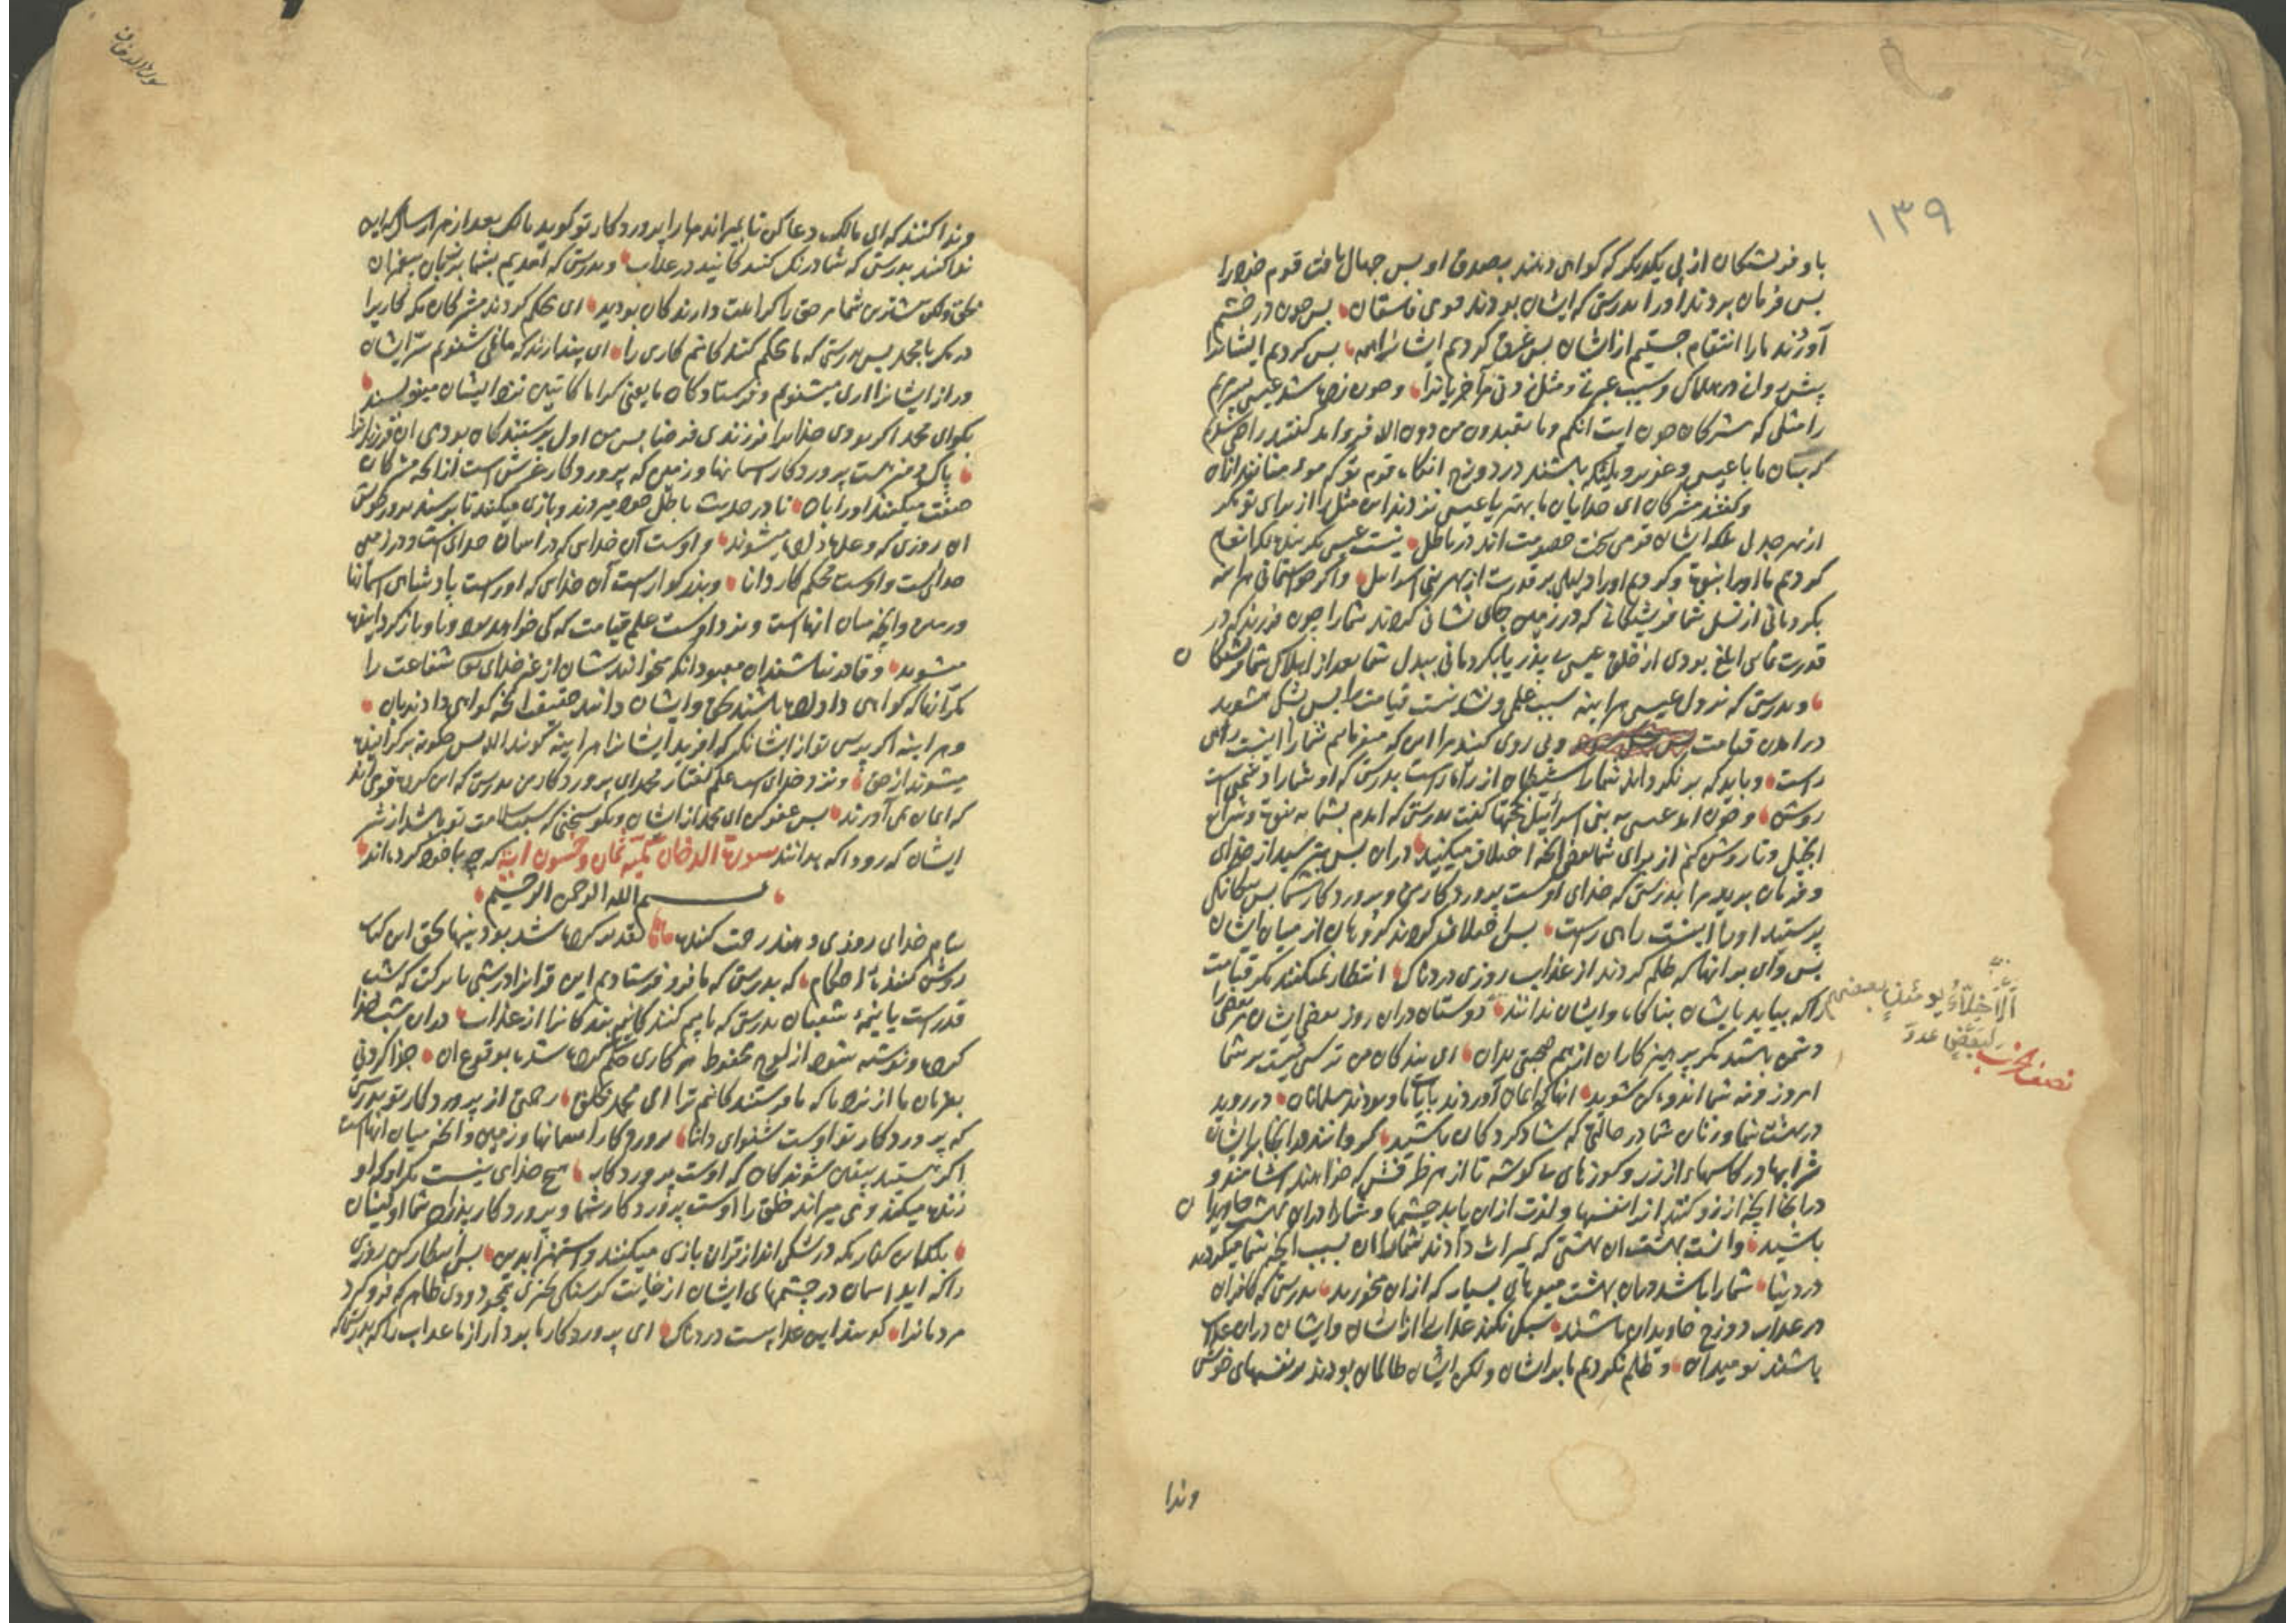 ۱۳۹
با و فرشتکان از پی یکدیکر که کواهی دهند بصدق او پس جهال یافت قوم خود را
پس فرمان بردند او را بدرستی که ایشان بودند قومی فاسقان پس چون در خشم
آوردند ما را انتقام جستیم از ایشان پس غرق کردیم ایشانرا همه پس کردیم ایشانرا
پیش روان در هلاک و سبب عبرت و مثل زدنی مر آخریانرا و چون زده شد عیسی مریم
را مثلی که مشرکان چون آیت انکم وما تعبدون من دون الله فرو آمد کفتند راضی شدیم
که بتان ما با عیسی و عزیر و ملئکه باشند در دوزخ انکاه قوم تو
و کفتند مشرکان ای خدایان ما بهتر یا عیسی نزدند این مثل را از برای تو مکر
از بهر جدل بلکه ایشان قومی سخت خصومت اند در باطل نیست عیسی مکر بنده که انعام
کردیم ما او را بنبوة و کردیم او را دلیلی بر قدرت از بهر بنی اسرائیل و اکر خواستمانی هر اینه
بکردمانی از نسل شما فرشتکانی که در زمین جای نشانی کردند شما را چون فرزند که در
قدرت نمایی ابلغ بودی از خلق عیسی بی پدر یا بکردمانی ببدل شما بعد از اهلاک شما فرشتکان
و بدرستی که نزول عیسی هر اینه سبب علمی و نشانیست قیامت را پس شکی مشوید
در آمدن قیامت و پی روی کنید مرا این که میفرمایم شما را اینست راهی
راست و باید که برنکرداند شما را شیطان از راه راست بدرستی که او شما را دشمنی است
روشن و چون آمد عیسی به بنی اسرائیل بحجتها کفت بدرستی که آمدم بشما به نبوة و شرایع
انجیل و تا روشن کنم از برای شما بعضی آنچه اختلاف میکنید در آن پس بترسید از خدای
و فرمان برید مرا بدرستی که خدای اوست پروردکار من و پروردکار شما پس بیکانکی
پرستید او را اینست راهی راست پس اختلاف کردند کروهان از میان ایشان
پس وای بر انها که ظلم کردند از عذاب روزی دردناک انتظار نمیکنند مکر قیامت
را که بیاید بایشان بناکاه و ایشان ندانند دوستان در ان روز بعضی ایشان بعضی را
اَلْاَخِلَّاءُ یومئذٍ بعضهم
لبعضٍ عدوّ
نصف الحزب
دشمن باشند مکر پرهیزکاران از بهم صحبتی بدان ای بندکان من ترسی نیست بر شما
امروز و نه شما اندوهکن شوید انها که ایمان آوردند بایات ما و بودند مسلمانان در روید
در بهشت شما و زنان شما در حالتی که شاد کردکان باشید کردانند در انجا بر ایشان
شرابها در کاسهای از زر و کوزهای بی کوشه تا از هر طرفش که خواهند اشامند و
در انجا آنچه آرزو کنند انرا نفسها و لذت ازان یابد چشمها و شما در ان بهشت جاویدان
باشید و آنست بهشت ان بهشتی که بمیراث دادند شما را ان بسبب آنچه شما میکردید
در دنیا شما را باشد در ان بهشت میوهای بسیار که از ان میخورید بدرستی که کافران
در عذاب دوزخ جاویدان باشند سبک نکنند عذاب را از ایشان و ایشان در ان عذاب
باشند نومیدان و ظلم نکردیم ما بر ایشان ولکن ایشان ظالمان بودند بر نفسهای خویش
وندا
سورة الدخان
وندا کنند که ای مالک دعا کن تا بمیراند ما را پروردکار تو کوید مالک بعد از هزار سال که این
ندا کنند بدرستی که شما درنک کنندکانید در عذاب و بدرستی که آمدیم بشما بزبان پیغمبران
بحق ولکن بیشترین شما مر حق را کراهت دارندکان بودید ای محکم کردند مشرکان مکر کاریرا
در مکر با محمد پس بدرستی که ما محکم کنندکانیم کاری را ای پندارند که ما نمی شنویم سر ایشان
و راز ایشانرا اری میشنویم و فرستادکان ما یعنی کراما کاتبین نزد ایشان مینویسند
بکو ای محمد اکر بودی خدایرا فرزندی فرضا پس من اول پرستندکان بودمی ان فرزند را
پاک و منزه است پروردکار اسمانها و زمین که پروردکار عرش است از آنچه مشرکان
صفت میکنند او را بان تا در حدیث باطل خود میروند و بازی میکنند تا برسند بروز خویش
ان روزی که وعده داده میشوند و اوست آن خدای که در اسمان خدای است و در زمین
خدای است و اوست محکم کار دانا و بزرکوار است آن خدای که او راست پادشاهی اسمانها
و زمین و آنچه میان انهاست و نزد اوست علم قیامت که کی خواهد بود و باو باز کردانیده
میشوید و قادر نباشند ان معبودان که میخوانند شان از غیر خدای شفاعت را
مکر آنها که کواهی داده باشند بحق و ایشان دانند حقیقت آنچه کواهی دادند بان
و هر اینه اکر پرسی تو از ایشان که که افرید ایشانرا هر اینه کویند الله پس چکونه برکردانیده
میشوند از حق و نزد خدای است علم کفتار محمد ای پروردکار من بدرستی که این کروه قومی اند
که ایمان نمی آورند پس عفو کن ای محمد از ایشان و بکو سخنی که سبب سلامت تو باشد از شر
ایشان که زود اکه بدانند سورة الدخان مکیه ثمان و خمسون ایة که چه با خود کرده اند
بسم الله الرحمن الرحیم
بنام خدای روزی دهنده رحمت کننده تقدیر کرده شد بودنیها بحق این کتاب
روشن کننده احکام که بدرستی که ما فرو فرستادیم این قرانرا در شبی با برکت که شب
قدر است یا نیمهٔ شعبان بدرستی که ما بیم کنندکانیم بندکانرا از عذاب در ان شب جدا
کرده و نوشته شود از لوح محفوظ هر کاری حکم کرده شده بوقوع ان جزا کردنی
بفرمان ما از نزد ما که ما فرستندکانیم ترا ای محمد بخلق رحمتی از پروردکار تو بدرستی
که پروردکار تو اوست شنوای دانا پروردکار اسمانها و زمین و آنچه میان انهاست
اکر هستید بیقین شوندکان که اوست پروردکار هیچ خدای نیست مکر او که او
زنده میکند و می میراند خلق را اوست پروردکار شما و پروردکار پدران شما اولینان
بلکه این کفار مکه در شکی اند از قران بازی میکنند و استهزا بدین پس انتظار کن روزی
را که اید اسمان در چشمهای ایشان از غایت کرسنکی چیزی همچو دودی ظاهر که فرو کیرد
مردمانرا کویند این عذابیست دردناک ای پروردکار ما بردار از ما عذاب را که بدرستی که